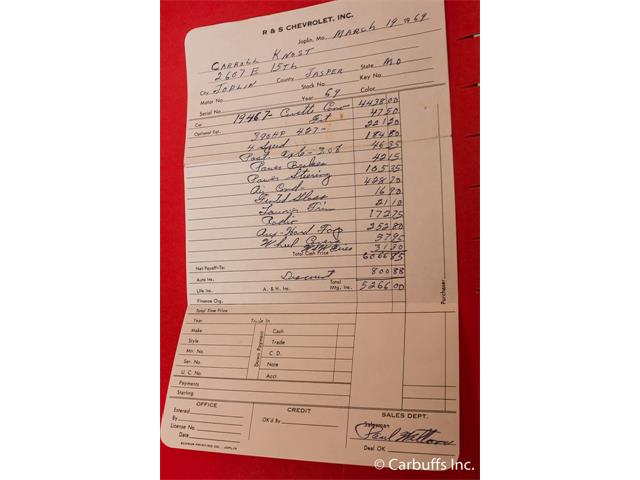 R & S CHEVROLET, INC.
Joplin, Mo. March 19 1969
CARROLL KNOST
2607 E 15TH
City JOPLIN County JASPER State MO
Motor No. Stock No. Key No.
Serial No. Year 69 Color
Car 19467- Corvette Conv 4438.00
Optional Eqt. Frt 47.50
390 HP 427- 221.20
4 Speed 184.80
Posi. Axle - 308 46.35
Power Brakes 42.15
Power Steering 105.35
Air Cond- 428.70
Tinted Glass 16.90
Interior Trim 21.10
Radio 172.75
Aux-Hard Top 252.80
Wheel Covers 57.95
Tires 31.30
Total Cash Price 6066.85
Net Payoff-To:
Auto Ins. Discount 800.88
Life Ins. A. & H. Ins. Total Mtg. Ins. 5266.00
Finance Org.
Purchaser
Total Time Price
Year Trade In
Make Down Payment Cash
Style Trade
Mtr. No. C. D.
Ser. No. Note
U. C. No. Accr.
Payments
Starting
OFFICE CREDIT SALES DEPT.
Entered
By OK'd By Salesman
License No. Paul
Date Deal OK
© Carbuffs Inc.